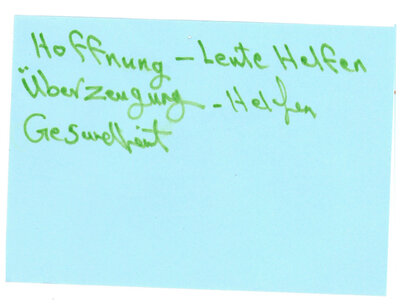 Hoffnung – Leute Helfen
Überzeugung - Helfen
Gesundheit